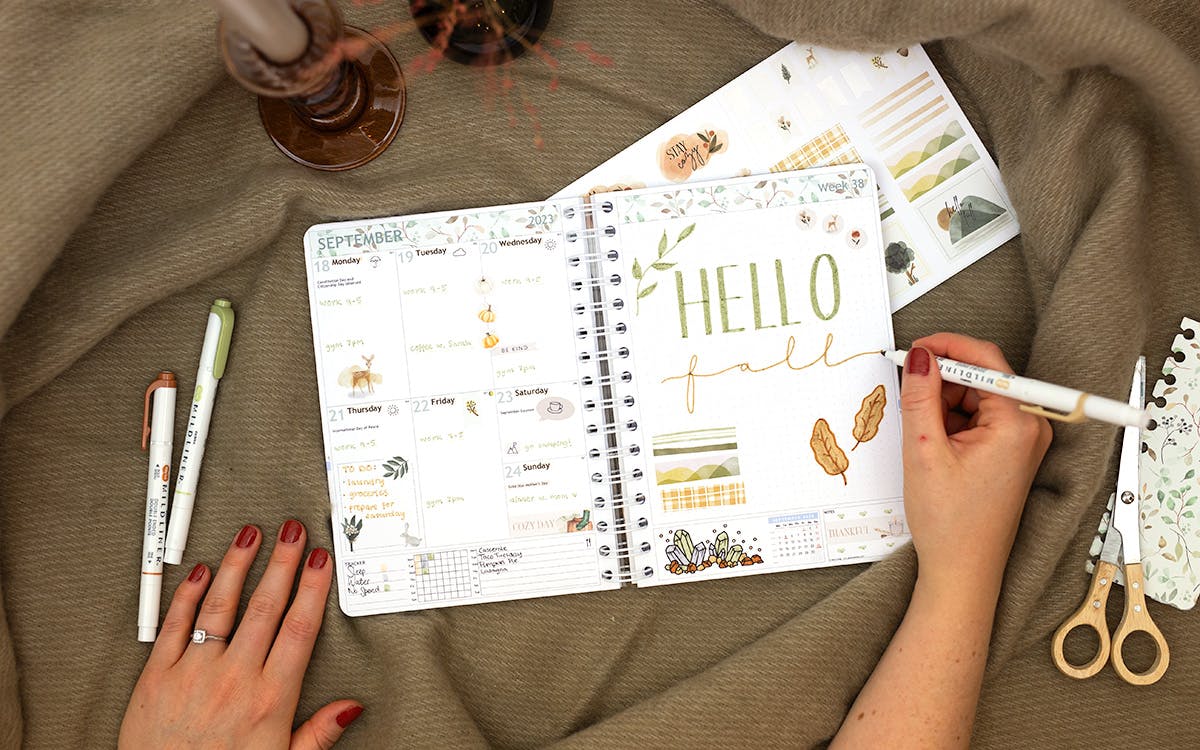 STAY
cozy
SEPTEMBER
2023
18 Monday
work 9-5
gym 7pm
19 Tuesday
coffee w.
20 Wednesday
work 9-5
BE KIND
gym 7pm
21 Thursday
International Day of Peace
work 9-5
TO DO:
laundry
groceries
prepare for
saturday
22 Friday
work 9-5
gym 7pm
23 Saturday
go camping!
24 Sunday
dinner w. mom
COZY DAY
TRACKER
Sleep
Water
No Spend
Casserole
Taco Tuesday
Pumpkin Pie
Lasagna
Week 38
HELLO
fall
NOTES
THANKFUL
hello
fall
MILDLINER
MILDLINER
MILDLINER